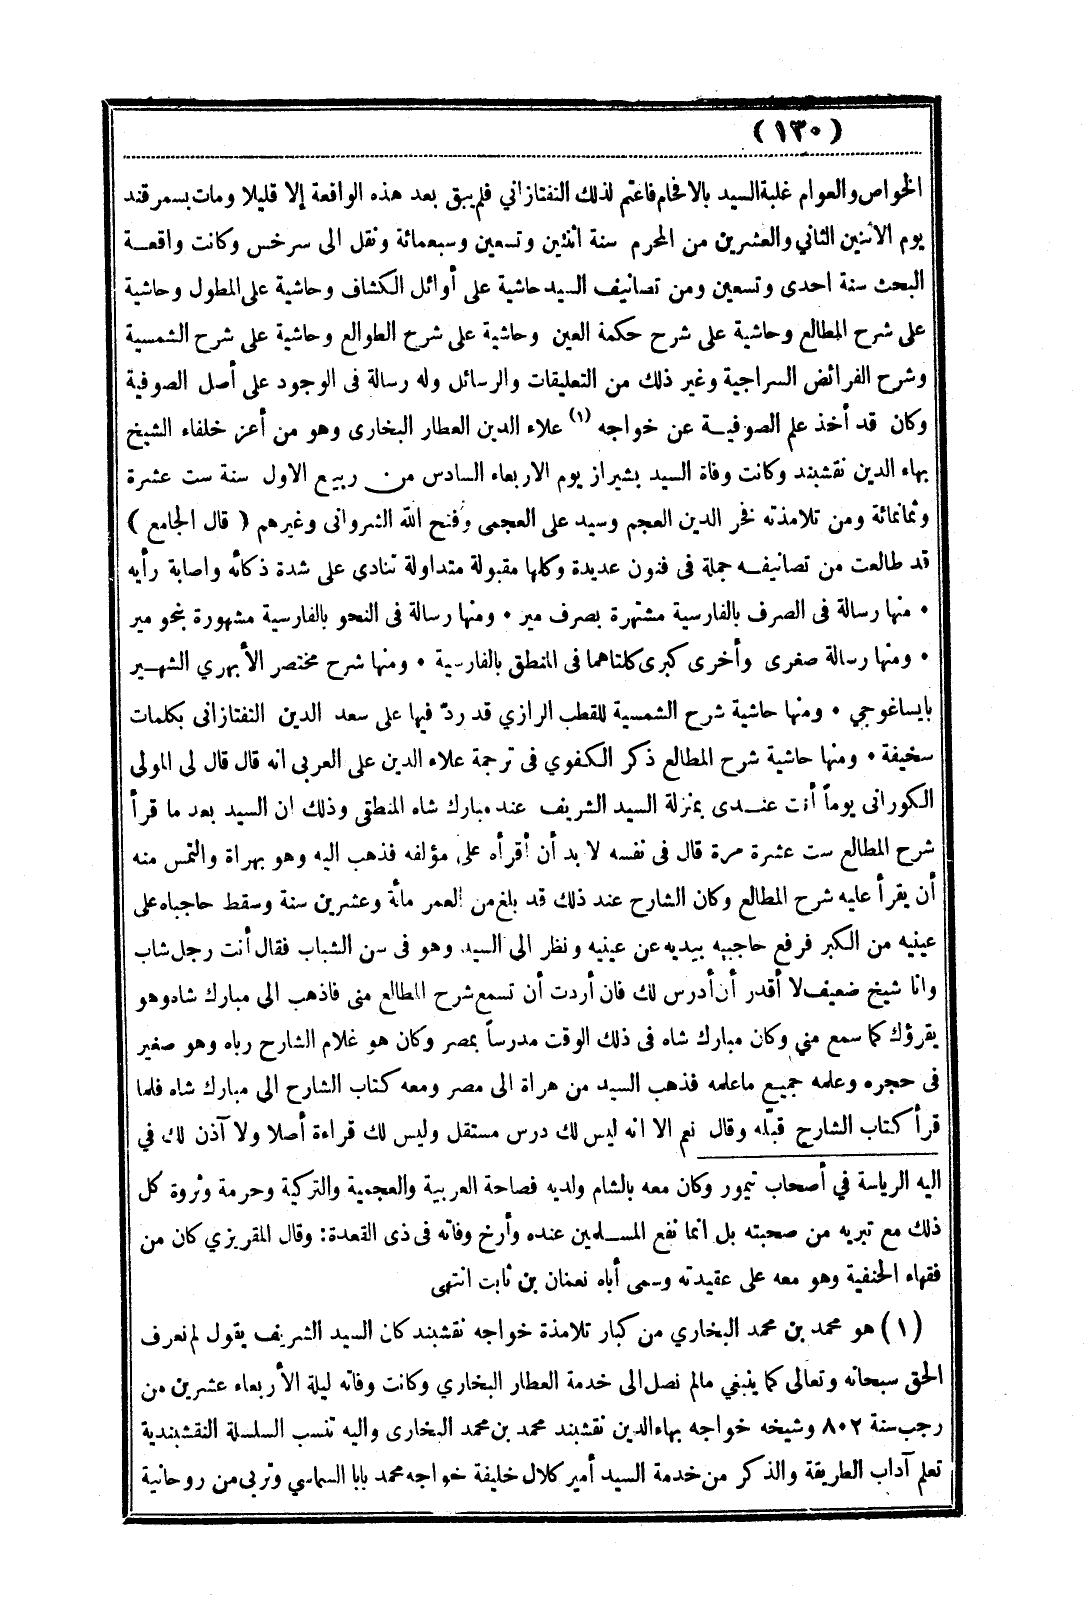 (١٣٠)
الخواص والعوام غلبة السيد بالافحام فاغتم لذلك التفتازاني فلم يبق بعد هذه الواقعة إلا قليلا ومات بسمرقند
يوم الاثنين الثاني والعشرين من المحرم سنة اثنتين وتسعين وسبعمائة ونقل الى سرخس وكانت واقعة
البحث سنة احدى وتسعين ومن تصانيف السيد حاشية على أوائل الكشاف وحاشية على المطول وحاشية
على شرح المطالع وحاشية على شرح حكمة العين وحاشية على شرح الطوالع وحاشية على شرح الشمسية
وشرح الفرائض السراجية وغير ذلك من التعليقات والرسائل وله رسالة فى الوجود على أصل الصوفية
وكان قد أخذ علم الصوفية عن خواجه (١) علاء الدين العطار البخارى وهو من أعز خلفاء الشيخ
بهاء الدين نقشبند وكانت وفاة السيد بشيراز يوم الاربعاء السادس من ربيع الاول سنة ست عشرة
وثمانمائة ومن تلامذته فخر الدين العجم وسيد على العجمى وفتح الله الشروانى وغيرهم ( قال الجامع )
قد طالعت من تصانيفه جملة فى فنون عديدة وكلها مقبولة متداولة تنادى على شدة ذكائه واصابة رأيه
• منها رسالة فى الصرف بالفارسية مشتهرة بصرف مير • ومنها رسالة فى النحو بالفارسية مشهورة بنحو مير
• ومنها رسالة صغرى وأخرى كبرى كلتاهما فى المنطق بالفارسية • ومنها شرح مختصر الأبهري الشهير
بايساغوجي • ومنها حاشية شرح الشمسية للقطب الرازي قد ردّ فيها على سعد الدين التفتازانى بكلمات
سخيفة • ومنها حاشية شرح المطالع ذكر الكفوي فى ترجمة علاء الدين على العربى انه قال قال لى المولى
الكورانى يوماً أنت عندى بمنزلة السيد الشريف عند مبارك شاه المنطقى وذلك ان السيد بعد ما قرأ
شرح المطالع ست عشرة مرة قال فى نفسه لا بد أن أقرأه على مؤلفه فذهب اليه وهو بهراة والتمس منه
أن يقرأ عليه شرح المطالع وكان الشارح عند ذلك قد بلغ من العمر مأة وعشرين سنة وسقط حاجباه على
عينيه من الكبر فرفع حاجبيه بيديه عن عينيه ونظر الى السيد وهو فى سن الشباب فقال أنت رجل شاب
وانا شيخ ضعيف لا أقدر أن أدرس لك فان أردت أن تسمع شرح المطالع منى فاذهب الى مبارك شاه وهو
يقرؤك كما سمع مني وكان مبارك شاه فى ذلك الوقت مدرساً بمصر وكان هو غلام الشارح رباه وهو صغير
فى حجره وعلمه جميع ماعلمه فذهب السيد من هراة الى مصر ومعه كتاب الشارح الى مبارك شاه فلما
قرأ كتاب الشارح قبّله وقال نعم الا انه ليس لك درس مستقل وليس لك قراءة أصلا ولا آذن لك في
اليه الرياسة في أصحاب تيمور وكان معه بالشام ولديه فصاحة العربية والعجمية والتركية وحرمة وثروة كل
ذلك مع تبريه من صحبته بل انما نفع المسلمين عنده وأرخ وفاته فى ذى القعدة: وقال المقريزي كان من
فقهاء الحنفية وهو معه على عقيدته وسمى أباه نعمان بن ثابت انتهى
(١) هو محمد بن محمد البخاري من كبار تلامذة خواجه نقشبند كان السيد الشريف يقول لم نعرف
الحق سبحانه وتعالى كما ينبغي مالم نصل الى خدمة العطار البخاري وكانت وفاته ليلة الأربعاء عشرين من
رجب سنة ٨٠٢ وشيخه خواجه بهاءالدين نقشبند محمد بن محمد البخارى واليه تنسب السلسلة النقشبندية
تعلم آداب الطريقة والذكر من خدمة السيد أمير كلال خليفة خواجه محمد بابا السماسي وتربى من روحانية